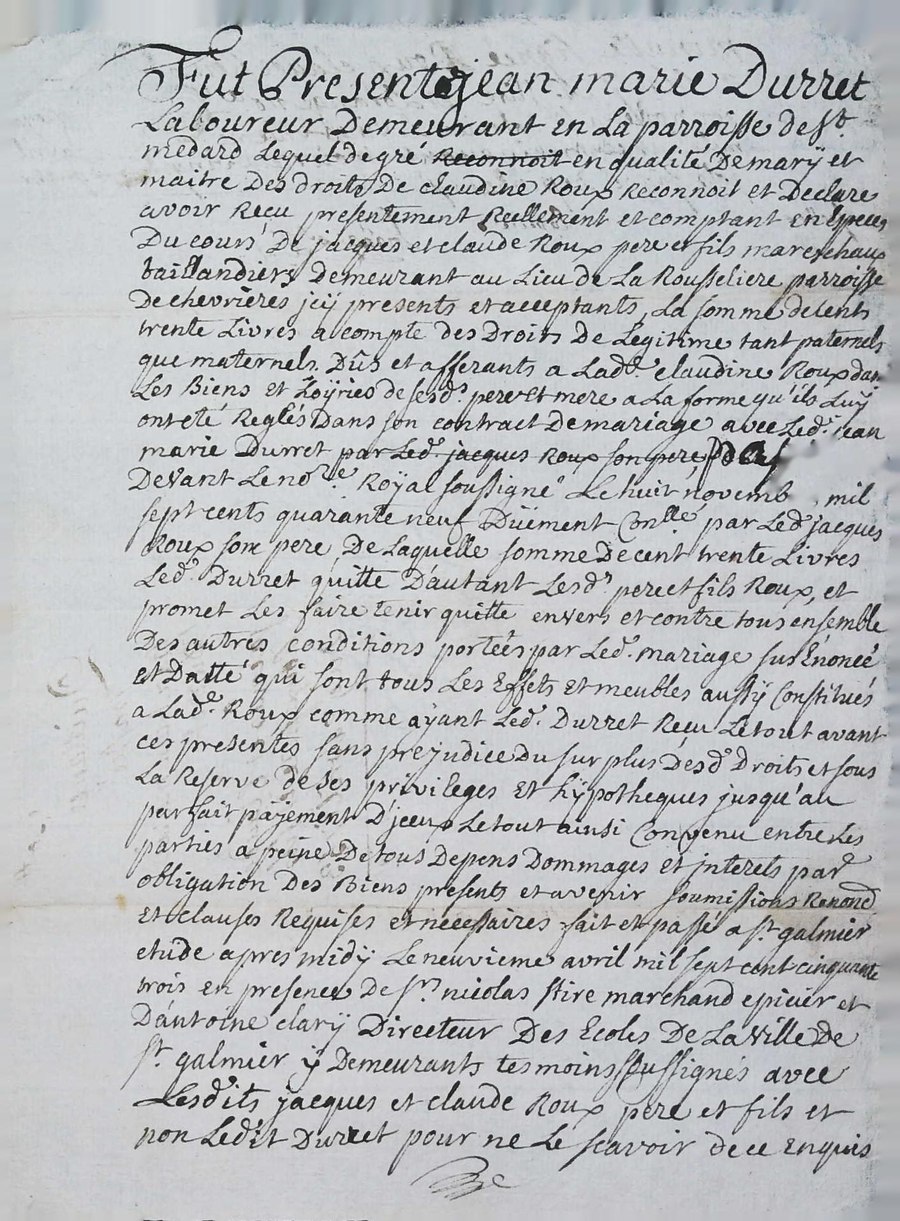 Fut Present jean marie Durret
Laboureur Demeurant en La parroisse de St.
medard Lequel de gré Reconnoit en qualité De marÿ et
maitre Des droits De claudine Roux Reconnoit et Declare
avoir Recu presentement Reellement et comptant en Especes
Du cours De jacques et claude Roux pere et fils marechaux
taillandiers Demeurant au Lieu de La Rousseliere parroisse
De chevrieres jcÿ presents et acceptants, La somme de cents
trente Livres a compte des Droits De Legitime tant paternels
que maternels. Dûs et afferants a Lade. claudine Roux dans
Les Biens et hoÿries de sesds. pere et mere a La forme qu'ils Luÿ
ont eté Reglés Dans son contract De mariage avec Led. jean
marie Durret par Led. jacques Roux son pere, pas
Devant Le nore. Roÿal soussigné Le huit novemb mil
sept cents quarante neuf Düement Conllé par Led jacques
Roux son pere De Laquelle somme De cent trente Livres
Led. Durret quitte D'autant Lesds. pere et fils Roux, et
promet Les faire tenir quitte envers et contre tous ensemble
Des autres conditions portées par Led. mariage sus Enoncé
et Datté qui sont tous Les Effets et meubles aussÿ Constitués
a Lade. Roux comme aÿant Led. Durret Recu Le tout avant
ces presentes sans prejudice Du surplus Desds Droits et sous
La Reserve de ses privileges et hÿpotheques jusqu'au
parfait païement D'jceux Le tout ainsi Convenu entre Les
parties a peine De tous Depens Dommages et jnterets par
obligation Des Biens presents et avenir soumissions Renond
et clauses Requises et necessaires fait et passé a St. galmier
etude apres midÿ Le neuvieme avril mil sept cent cinquante
trois en presence De Sr. nicolas Stire marchand epicier et
D'antoine clarÿ Directeur Des Ecoles De La ville de
St. galmier ÿ Demeurants temoins soussignés avec
Lesdits jacques et claude Roux pere et fils et
non Ledit Durret pour ne Le scavoir de ce enquis